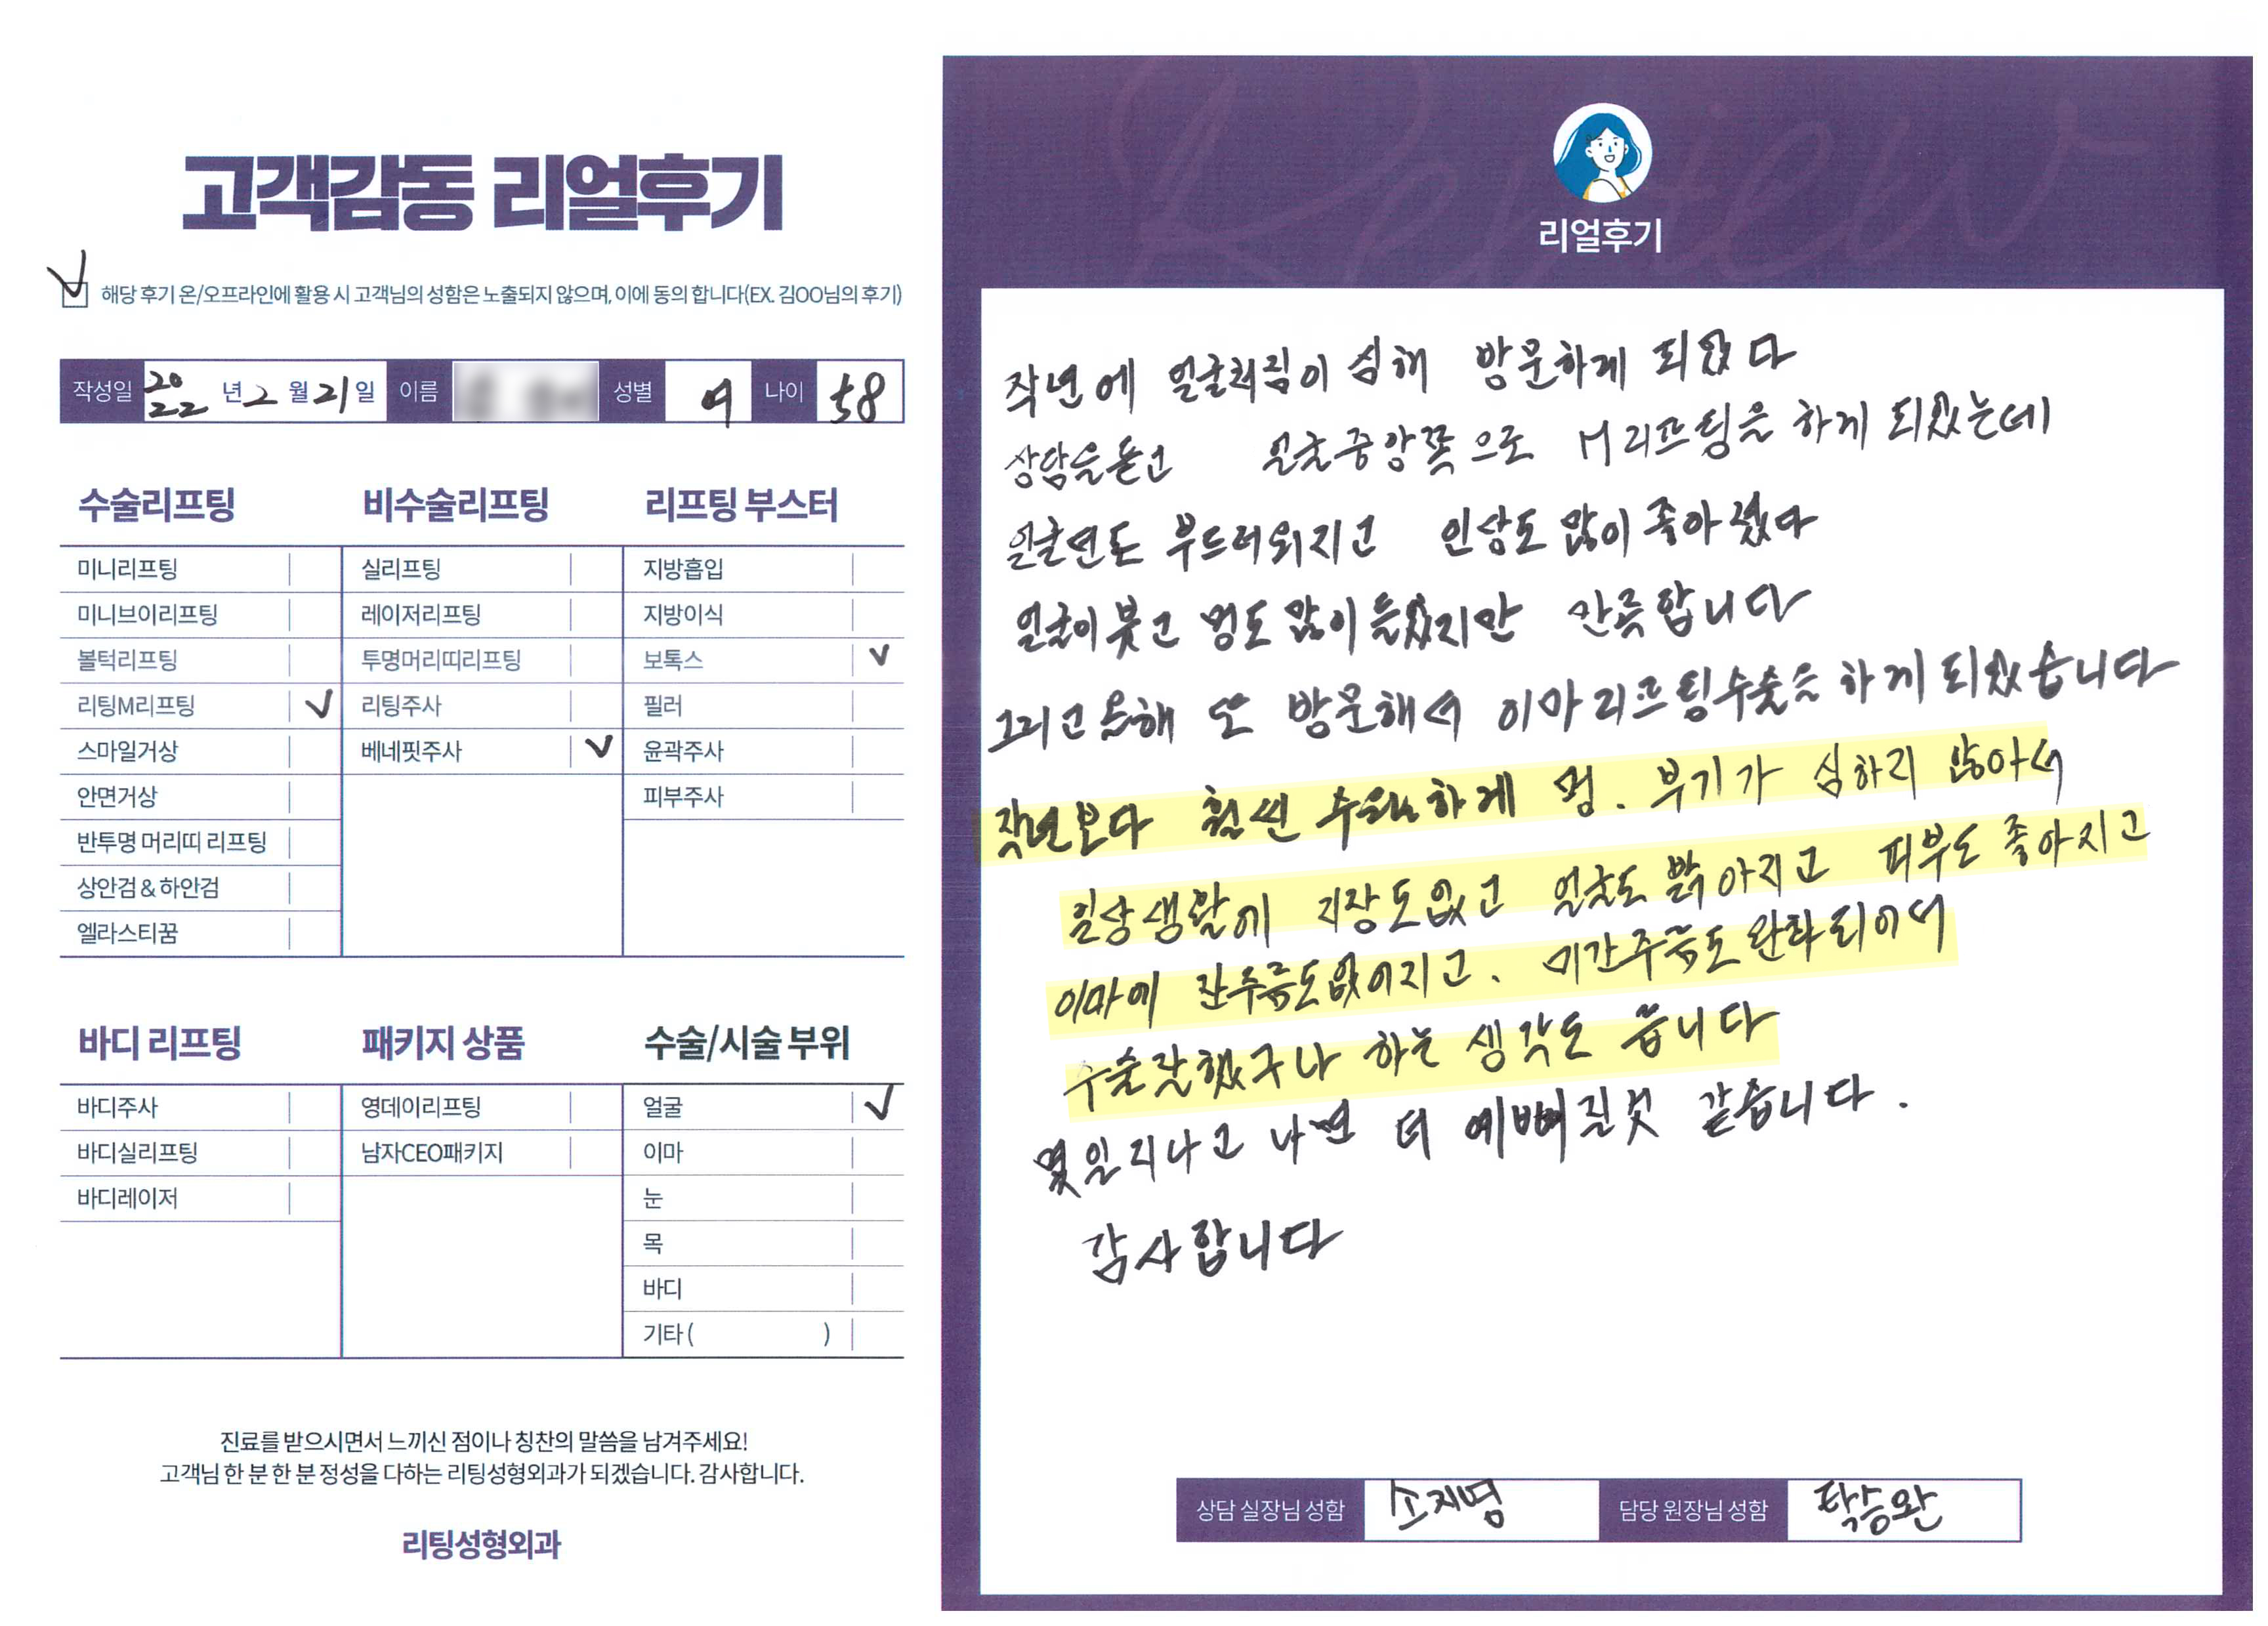 고객감동 리얼후기
해당 후기 온/오프라인에 활용 시 고객님의 성함은 노출되지 않으며, 이에 동의 합니다(EX. 김OO님의 후기)
작성일 2022 년 2 월 21 일 이름 성별 여 나이 58
수술리프팅 비수술리프팅 리프팅 부스터
미니리프팅 실리프팅 지방흡입
미니브이리프팅 레이저리프팅 지방이식
볼턱리프팅 투명머리띠리프팅 보톡스 ✓
리팅M리프팅 ✓ 리팅주사 필러
스마일거상 베네핏주사 ✓ 윤곽주사
안면거상 피부주사
반투명 머리띠 리프팅
상안검 & 하안검
엘라스티꿈
바디 리프팅 패키지 상품 수술/시술 부위
바디주사 영데이리프팅 얼굴 ✓
바디실리프팅 남자CEO패키지 이마
바디레이저 눈
목
바디
기타 ( )
진료를 받으시면서 느끼신 점이나 칭찬의 말씀을 남겨주세요!
고객님 한 분 한 분 정성을 다하는 리팅성형외과가 되겠습니다. 감사합니다.
리팅성형외과
Review
리얼후기
작년에 얼굴처짐이 심해 방문하게 되었다
상담을 얼굴중앙쪽으로 M리프팅을 하게 되었는데
얼굴면도 부드러워지고 인상도 많이 좋아졌다
얼굴이 붓고 멍도 많이 들었지만 만족합니다
그리고 올해 또 방문해서 이마리프팅수술을 하게 되었습니다
작년보다 훨씬 수월하게 멍. 부기가 심하지 않아서
일상생활에 지장도없고 얼굴도 밝아지고 피부도 좋아지고
이마에 잔주름도없어지고. 미간주름도 완화되어서
수술잘했구나 하는 생각도 듭니다
몇일 지나고 나면 더 예뻐질것 같습니다.
감사합니다
상담 실장님 성함 소지영 담당 원장님 성함 탁승완